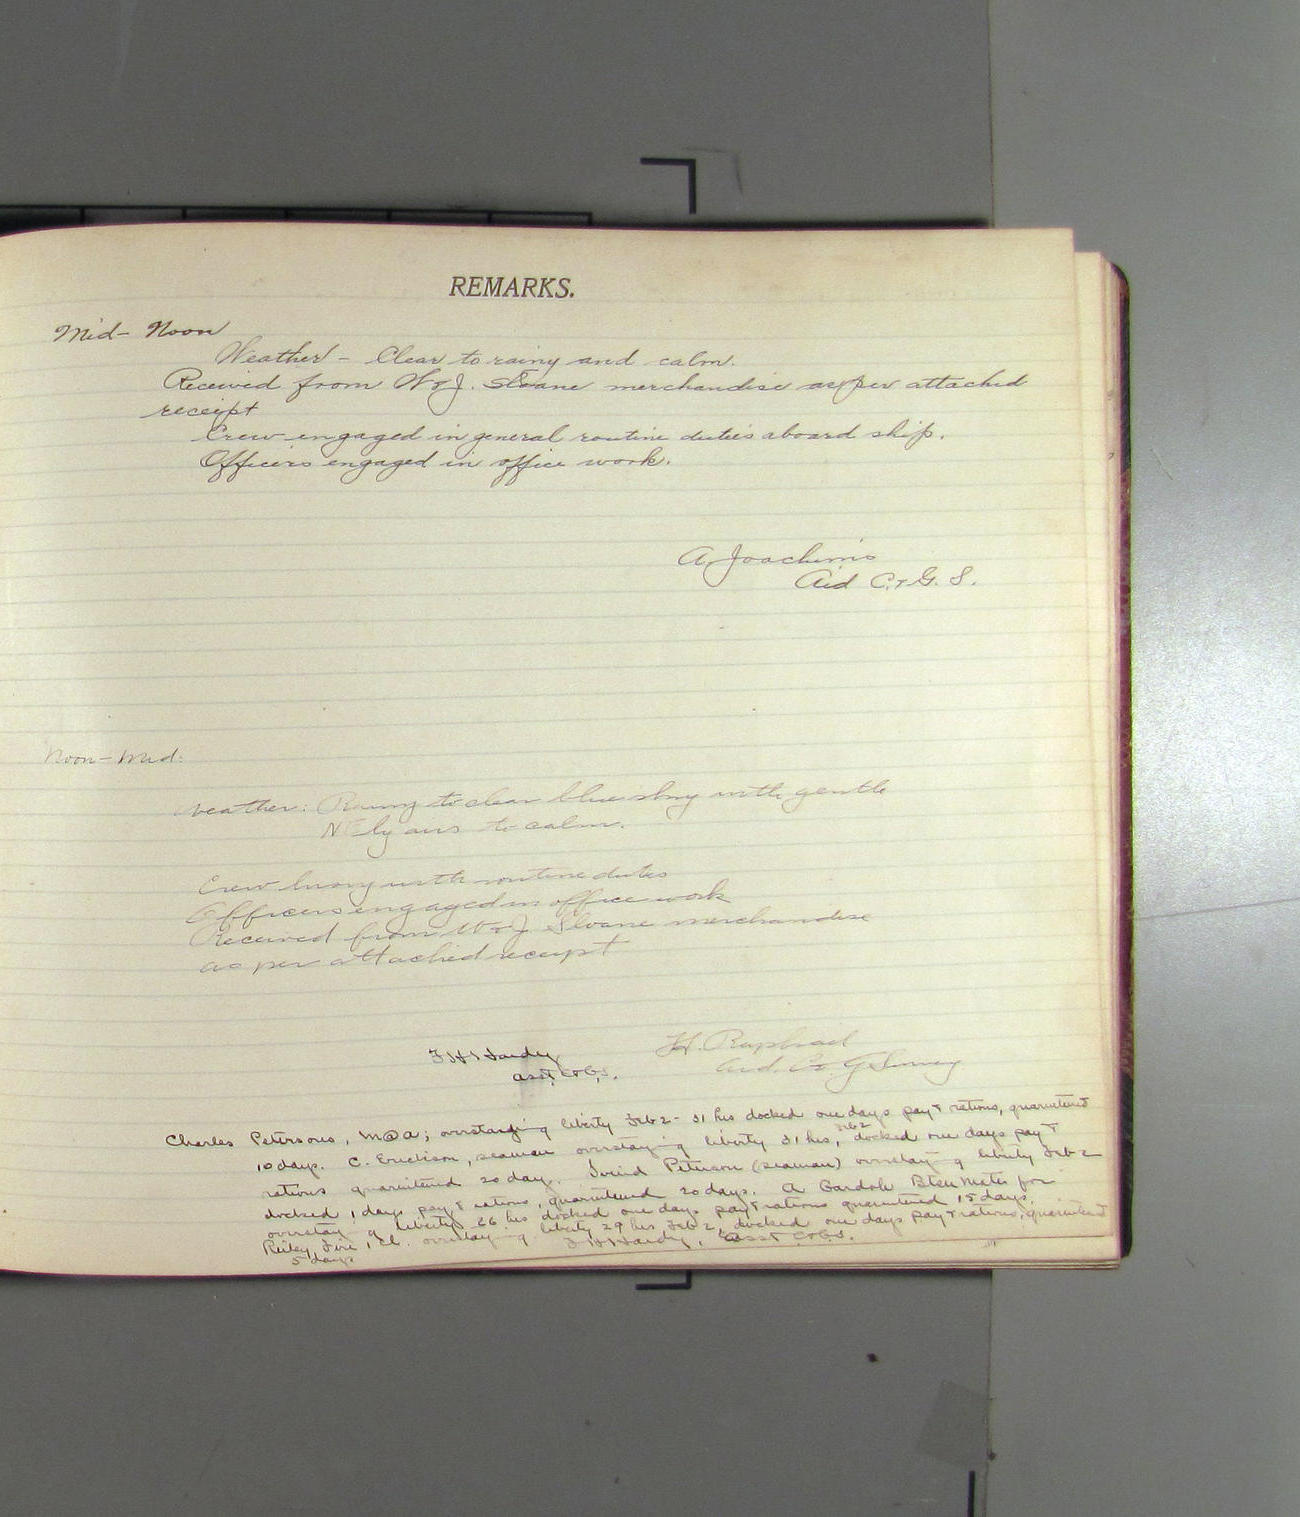 REMARKS.
Mid- Noon
Weather - Clear to rainy and calm.
Received from W & J. Sloane merchandise as per attached
receipt
Crew engaged in general routine duties aboard ship.
Officers engaged in office work.
A. Joachims
Aid C. & G. S.
Noon- Mid:
Weather: Rainy to clear blue sky with gentle
NEly airs to calm.
Crew busy with routine duties
Officers engaged in office work
Received from W & J. Sloane merchandise
as per attached receipt
Hardy
Asst. C&GS.
H. Raphael
Aid. Co. G Survey
Charles Petersons, M@a; overstaying liberty Feb 2 - 31 hrs docked one days pay & rations, quarantened
10 days. C. Erickson, seaman overstaying liberty 31 hrs, Feb 2 docked one days pay &
rations quarantened 20 days. Peterson (seaman) overstaying liberty Feb 2
docked 1 days pay & rations, quarantened 20 days. A Mates for
overstaying liberty 26 hrs docked one days pay & rations quarantened 15 days.
Reiley, overstaying liberty 29 hrs Feb 2, docked one days pay & rations, quarantened
5 days Hardy, Asst C&GS.